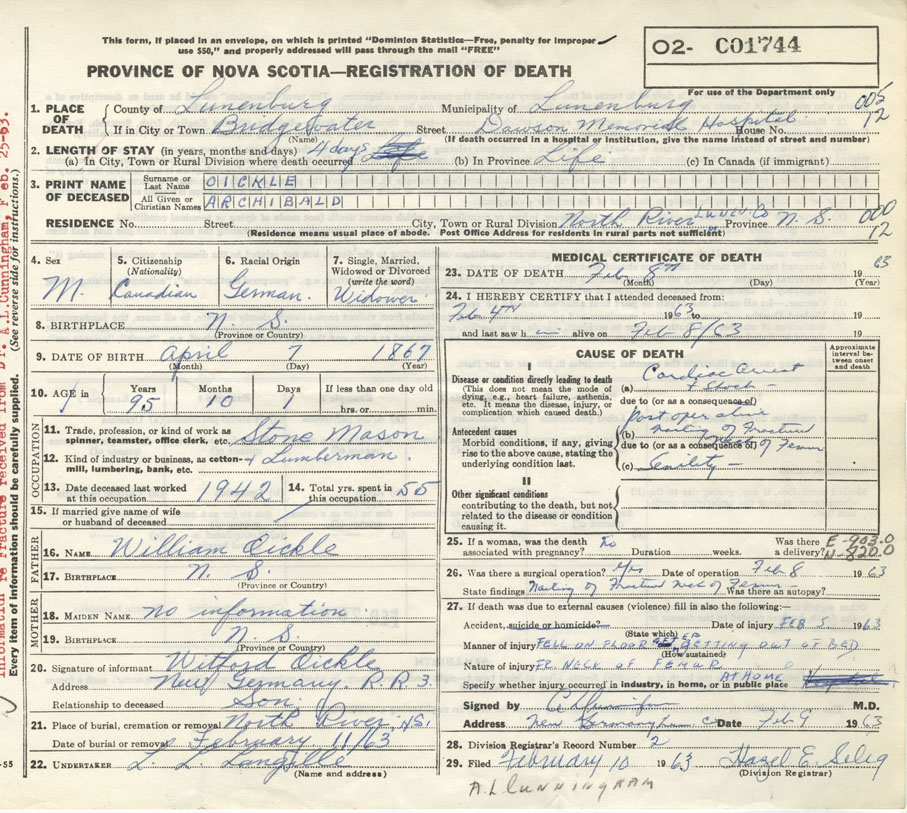 This form, if placed in an envelope, on which is printed "Dominion Statistics—Free, penalty for improper
use $50," and properly addressed will pass through the mail "FREE"
O2- C01744
PROVINCE OF NOVA SCOTIA—REGISTRATION OF DEATH
For use of the Department only
1. PLACE OF DEATH County of Lunenburg Municipality of Lunenburg 005
If in City or Town Bridgewater Street Dawson Memorial Hospital House No. 12
(Name) (If death occurred in a hospital or institution, give the name instead of street and number)
2. LENGTH OF STAY (in years, months and days) 4 days
(a) In City, Town or Rural Division where death occurred (b) In Province Life (c) In Canada (if immigrant)
3. PRINT NAME OF DECEASED Surname or Last Name OICKLE
All Given or Christian Names ARCHIBALD
RESIDENCE No. Street City, Town or Rural Division North River Lunen. Co Province N. S. 000
(Residence means usual place of abode. Post Office Address for residents in rural parts not sufficient) 12
4. Sex M.
5. Citizenship (Nationality) Canadian
6. Racial Origin German.
7. Single, Married, Widowed or Divorced (write the word) Widower
8. BIRTHPLACE N. S.
(Province or Country)
9. DATE OF BIRTH April 7 1867
(Month) (Day) (Year)
10. AGE in Years 95 Months 10 Days 1 If less than one day old
hrs. or min.
OCCUPATION
11. Trade, profession, or kind of work as spinner, teamster, office clerk, etc. Stone Mason
12. Kind of industry or business, as cotton-mill, lumbering, bank, etc. + Lumberman.
13. Date deceased last worked at this occupation 1942 14. Total yrs. spent in this occupation 55
15. If married give name of wife or husband of deceased
FATHER
16. NAME William Oickle
17. BIRTHPLACE N. S.
(Province or Country)
MOTHER
18. MAIDEN NAME no information
19. BIRTHPLACE N. S.
(Province or Country)
20. Signature of informant Witford Oickle
Address New Germany, R.R 3.
Relationship to deceased Son.
21. Place of burial, cremation or removal North River, N.S.
Date of burial or removal February 11/63
22. UNDERTAKER L. L. Langille
(Name and address)
MEDICAL CERTIFICATE OF DEATH
23. DATE OF DEATH Feb 8th 19 63
(Month) (Day) (Year)
24. I HEREBY CERTIFY that I attended deceased from:
Feb 4th 1963 to 19
and last saw h im alive on Feb 8/63 19
CAUSE OF DEATH
Approximate interval between onset and death
I
Disease or condition directly leading to death
(This does not mean the mode of dying, e.g., heart failure, asthenia, etc. It means the disease, injury, or complication which caused death.)
(a) Cardiac arrest + Shock –
due to (or as a consequence of)
Antecedent causes
Morbid conditions, if any, giving rise to the above cause, stating the underlying condition last.
(b) Post operative nailing of Fractured neck of Femur
due to (or as a consequence of)
(c) Senility –
II
Other significant conditions
contributing to the death, but not related to the disease or condition causing it.
25. If a woman, was the death associated with pregnancy? No Duration weeks. Was there a delivery?
E-903.0
N-820.0
26. Was there a surgical operation? Yes Date of operation Feb 8 1963
State findings Nailing of Fractured neck of Femur Was there an autopsy?
27. If death was due to external causes (violence) fill in also the following:—
Accident, suicide or homicide? Date of injury FEB 5. 1963
(State which)
Manner of injury FELL ON FLOOR AFTER GETTING OUT OF BED
(How sustained)
Nature of injury FR. NECK OF FEMUR
Specify whether injury occurred in industry, in home, or in public place AT HOME
Signed by M.D.
Address New Germany Date Feb 9 1963
28. Division Registrar's Record Number 12
29. Filed February 10 1963 Hazel E. Seleg
(Division Registrar)
A.L CUNNINGHAM
Every item of information should be carefully supplied. (See reverse side for instructions.)
Informatin re fracture received from Dr. A.L.Cunningham, Feb. 25-63.
-55